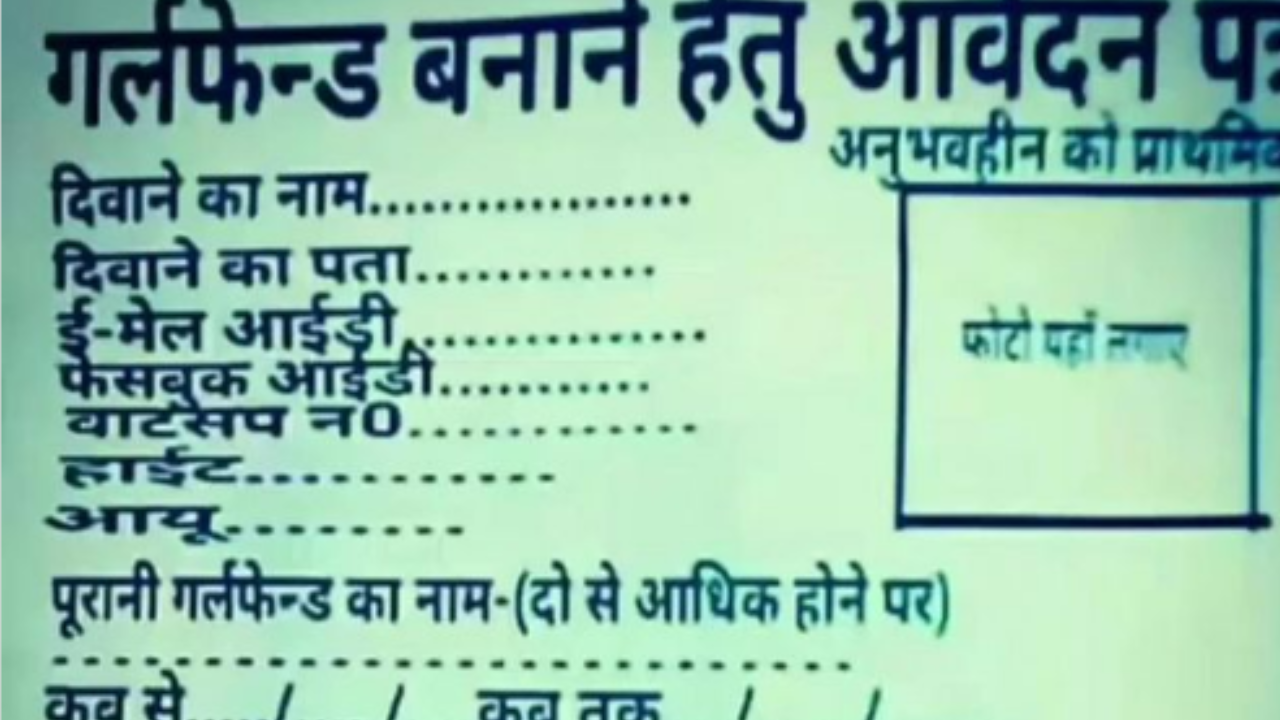 गर्लफेन्ड बनाने हेतु आवेदन
अनुभवहीन को
दिवाने का नाम..................
दिवाने का पता............
ई-मेल आईडी...............
फेसबुक आईडी...........
वाटसप न0............
हाईट...........
आयू........
फोटो यहाँ लगाए
पूरानी गर्लफेन्ड का नाम-(दो से आधिक होने पर)
---------------------------
कब से...../...../..... कब तक...../...../.....